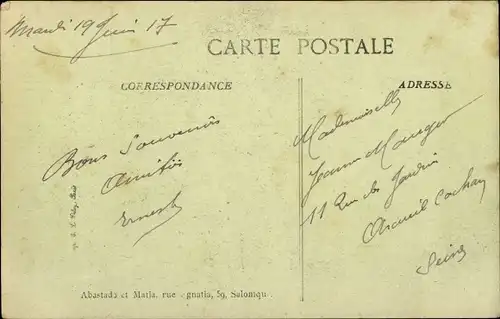 Mardi 19 Juin 17
CARTE POSTALE
CORRESPONDANCE
ADRESSE
Bons Souvenirs
Amitiés
Ernest
Mademoiselle
Jeanne
11 Rue des Jardins
Arcueil Cachan
Seine
Abastado et Matja, rue Egnatia, 59, Salonique